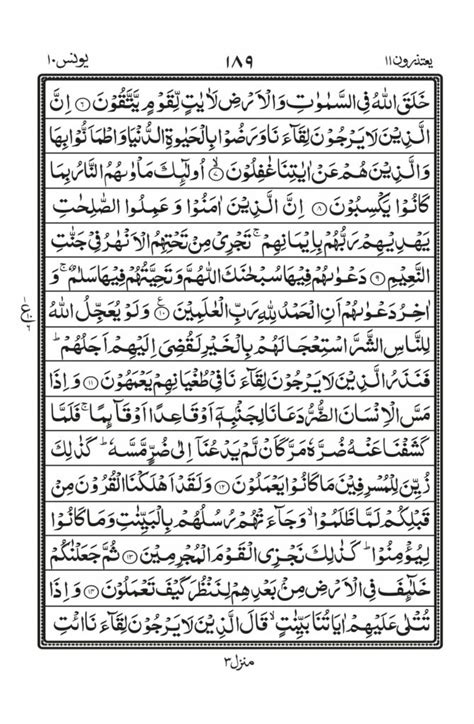 یعتذرون ۱۱ ۱۸۹ یونس ۱۰
خَلَقَ اللّٰهُ فِی السَّمٰوٰتِ وَالْاَرْضِ لَاٰیٰتٍ لِّقَوْمٍ یَّتَّقُوْنَ ﴿۶﴾ اِنَّ
الَّذِیْنَ لَا یَرْجُوْنَ لِقَآءَنَا وَرَضُوْا بِالْحَیٰوةِ الدُّنْیَا وَاطْمَاَنُّوْا بِهَا
وَالَّذِیْنَ هُمْ عَنْ اٰیٰتِنَا غٰفِلُوْنَ ﴿۷﴾ اُولٰٓئِكَ مَاْوٰىهُمُ النَّارُ بِمَا
كَانُوْا یَكْسِبُوْنَ ﴿۸﴾ اِنَّ الَّذِیْنَ اٰمَنُوْا وَعَمِلُوا الصّٰلِحٰتِ
یَهْدِیْهِمْ رَبُّهُمْ بِاِیْمَانِهِمْ ۚ تَجْرِیْ مِنْ تَحْتِهِمُ الْاَنْهٰرُ فِیْ جَنّٰتِ
النَّعِیْمِ ﴿۹﴾ دَعْوٰىهُمْ فِیْهَا سُبْحٰنَكَ اللّٰهُمَّ وَتَحِیَّتُهُمْ فِیْهَا سَلٰمٌ ۚ وَ
اٰخِرُ دَعْوٰىهُمْ اَنِ الْحَمْدُ لِلّٰهِ رَبِّ الْعٰلَمِیْنَ ﴿۱۰﴾ وَلَوْ یُعَجِّلُ اللّٰهُ
لِلنَّاسِ الشَّرَّ اسْتِعْجَالَهُمْ بِالْخَیْرِ لَقُضِیَ اِلَیْهِمْ اَجَلُهُمْ ؕ
فَنَذَرُ الَّذِیْنَ لَا یَرْجُوْنَ لِقَآءَنَا فِیْ طُغْیَانِهِمْ یَعْمَهُوْنَ ﴿۱۱﴾ وَاِذَا
مَسَّ الْاِنْسَانَ الضُّرُّ دَعَانَا لِجَنْۢبِهٖۤ اَوْ قَاعِدًا اَوْ قَآئِمًا ۚ فَلَمَّا
كَشَفْنَا عَنْهُ ضُرَّهٗ مَرَّ كَاَنْ لَّمْ یَدْعُنَاۤ اِلٰی ضُرٍّ مَّسَّهٗ ؕ كَذٰلِكَ
زُیِّنَ لِلْمُسْرِفِیْنَ مَا كَانُوْا یَعْمَلُوْنَ ﴿۱۲﴾ وَلَقَدْ اَهْلَكْنَا الْقُرُوْنَ مِنْ
قَبْلِكُمْ لَمَّا ظَلَمُوْا ۙ وَجَآءَتْهُمْ رُسُلُهُمْ بِالْبَیِّنٰتِ وَمَا كَانُوْا
لِیُؤْمِنُوْا ؕ كَذٰلِكَ نَجْزِی الْقَوْمَ الْمُجْرِمِیْنَ ﴿۱۳﴾ ثُمَّ جَعَلْنٰكُمْ
خَلٰٓئِفَ فِی الْاَرْضِ مِنْۢ بَعْدِهِمْ لِنَنْظُرَ كَیْفَ تَعْمَلُوْنَ ﴿۱۴﴾ وَاِذَا
تُتْلٰی عَلَیْهِمْ اٰیَاتُنَا بَیِّنٰتٍ ۙ قَالَ الَّذِیْنَ لَا یَرْجُوْنَ لِقَآءَنَا ائْتِ
منزل ۳